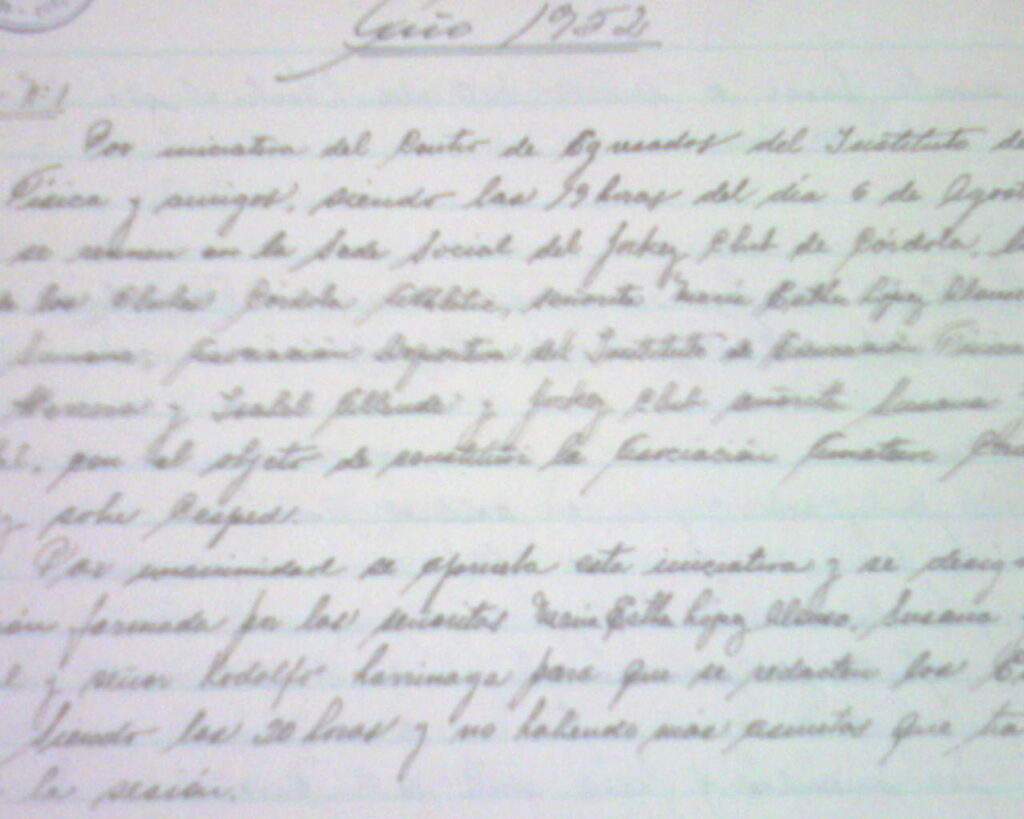 Año 1952
Nº 1
Por iniciativa del Centro de Egresados del Instituto de
Física y amigos, siendo las 19 horas del día 6 de Agosto
se reunen en la Sede Social del Jockey Club de Córdoba,
de los Clubes Córdoba Athletic, señorita María Esther López Alonso
Susana, Asociación Deportiva del Instituto de Educación Física
Moreno y Isabel Allende y Jockey Club señorita Susana
con el objeto de constituir la Asociación Amateur
sobre Cesped.
Por unanimidad se aprueba esta iniciativa y se
formada por las señoritas María Esther López Alonso, Susana
y señor Rodolfo Larrinaga para que se redacten los
Siendo las 20 horas y no habiendo más asuntos que
la sesión.